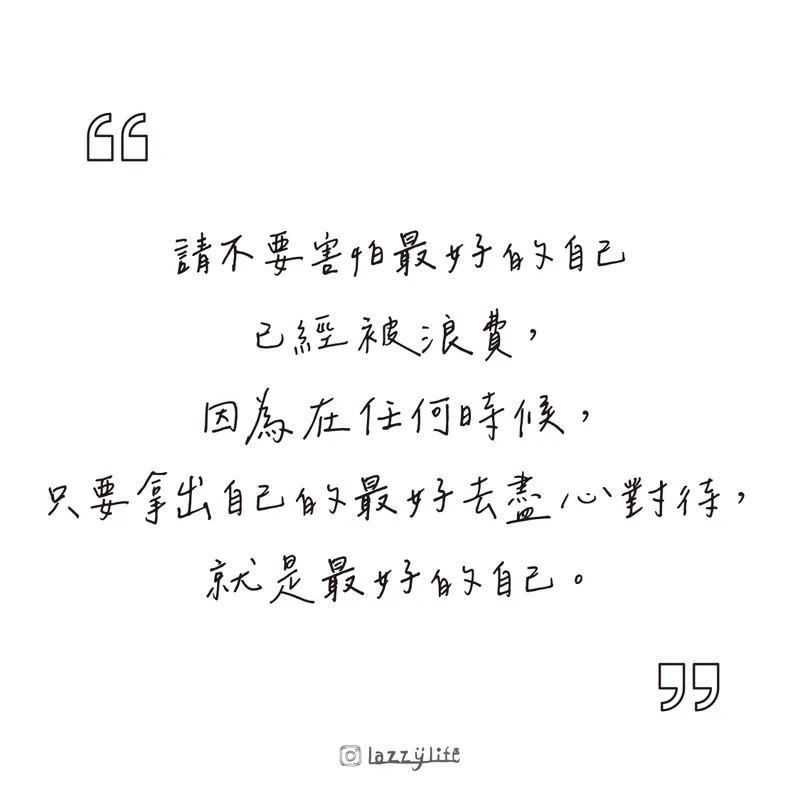 請不要害怕最好的自己
已經被浪費，
因為在任何時候，
只要拿出自己的最好去盡心對待，
就是最好的自己。
lazzylife